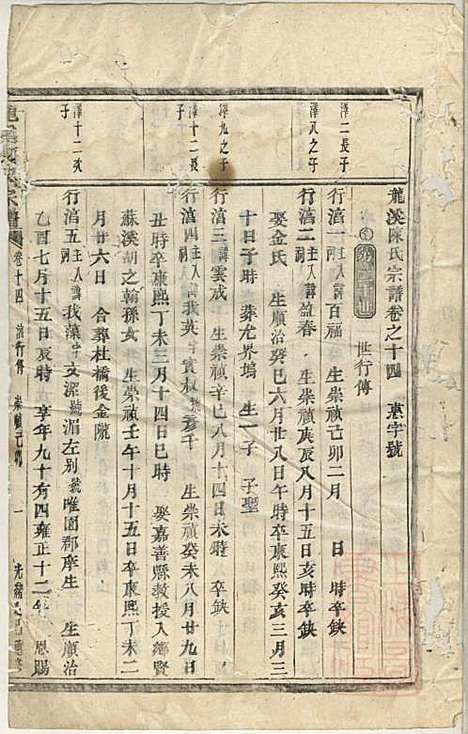 龍溪陳氏宗譜卷之十四 惠字號
世行傳
澤二長子
行滀一 主人諱百福 生崇禎己卯二月 日 時卒缺
澤八之子
行滀二 主人諱盈春 生崇禎庚辰八月十五日亥時卒缺
娶金氏 生順治癸巳六月廿八日午時卒康熙癸亥三月三
十日子時 葬尤界塢 生一子 子聖
澤九之子
行滀三 主人諱雲成 生崇禎辛巳八月十四日未時 卒缺
澤十二長子
行滀四 主人諱我英字賓叔 千 生崇禎癸未八月廿九日
丑時卒康熙丁未三月十四日巳時 娶嘉善縣教授入鄉賢
蘇溪胡之翰孫女 生崇禎壬午十月十五日卒康熙丁未二
月廿六日 合葬杜橋後金隴
澤十二次子
行滀五 主人諱我藻字文潔號湄左别號唯園郡庠生 生順治
乙酉七月十五日辰時 享年九十有四雍正十二年 恩賜
宗譜 卷十四 行傳 崇禎己卯 一 光緒